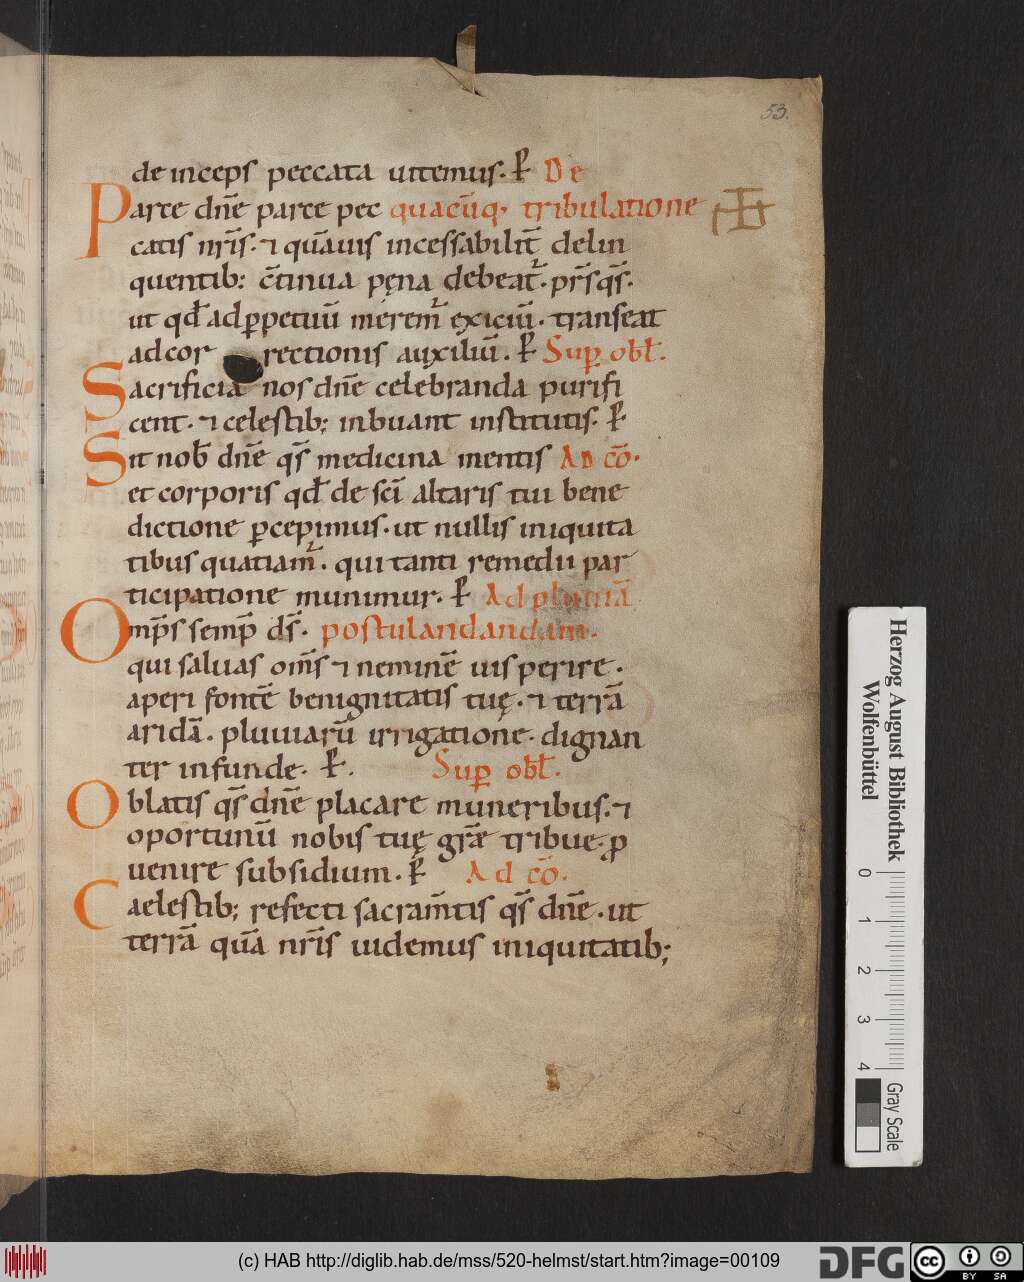 53.
de inceps peccata uitemus. ꝑ De
Parce dn̄e parce pec quacūq; tribulatione
catis nr̄is. ⁊ quāuis incessabilit̄ delin
quentib; c̄tinua pęna debeat᷑. pr̄s qs̄.
ut qđ ad ꝑpetuū merem᷑ exiciū. transeat
ad cor rectionis auxiliū. ꝑ Suꝑ obł.
Sacrificia nos dn̄e celebranda purifi
cent. ⁊ celestib; inbuant institutis. ꝑ
Sit nob̄ dn̄e qs̄ medicina mentis AD cō.
et corporis qđ de sc̄i altaris tui bene
dictione ꝑcepimus. ut nullis iniquita
tibus quatiam᷑. qui tanti remedii par
ticipatione munimur. ꝑ Ad pluuiā
Omp̄s semp̄ ds̄. postulandandam.
qui saluas om̄s ⁊ neminē uis perire.
aperi fontē benignitatis tuę. ⁊ terrā
aridā. pluuiarū irrigatione. dignan
ter infunde. ꝑ. Suꝑ obł.
Oblatis qs̄ dn̄e placare muneribus. ⁊
oportunū nobis tuę gr̄æ tribue. ꝓ
uenire subsidium. ꝑ Ad cō.
Caelestib; refecti sacram̄tis qs̄ dn̄e. ut
terrā quā nr̄is uidemus iniquitatib;
Herzog August Bibliothek
Wolfenbüttel
0 1 2 3 4
Gray Scale
(c) HAB http://diglib.hab.de/mss/520-helmst/start.htm?image=00109
DFG
cc BY SA